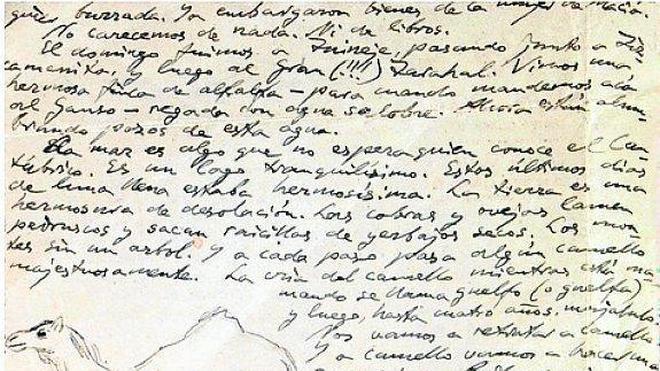 quier burrada. Ya embargaron bienes de la mujer de Macío.
No carecemos de nada. Ni de libros.
El domingo fuimos a Tuineje, pasando junto a Tis-
camanita, y luego al gran (!!!) Tarahal. Vimos una
hermosa finca de alfalfa – para cuando mandemos acá
al ganso – regada con agua salobre. Ahora están alum-
brando pozos de esta agua.
La mar es algo que no espera quien conoce el Can-
tábrico. Es un lago tranquilísimo. Estos últimos días
de luna llena estaba hermosísima. La tierra es una
hermosura de desolación. Las cabras y ovejas lamen
pedruscos y sacan raicillas de yerbajos secos. Los mon-
tes sin un arbol. Y a cada paso pasa algún camello
majestuosamente. La cría del camello mientras está ma-
mando se llama guelfo (o guelfa)
y luego, hasta cuatro años, majalulo.
Nos vamos a retratar a camello
Y a camello vamos a hacer una